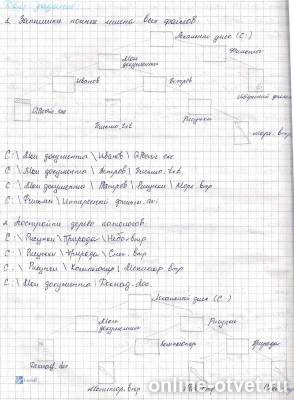 1. Запишите полные имена всех файлов.
Локальный диск (C:)
Мои документы
Фильмы
Иванов
Петров
QBasic.exe
Письмо.txt
Рисунки
Море.bmp
C:\ Мои документы \ Иванов \ QBasic.exe
C:\ Мои документы \ Петров \ Письмо.txt
C:\ Мои документы \ Петров \ Рисунки \ Море.bmp
C:\ Фильмы \ Интересный фильм.avi
2. Постройте дерево каталогов.
C:\ Рисунки \ Природа \ Небо.bmp
C:\ Рисунки \ Природа \ Снег.bmp
C:\ Рисунки \ Компьютер \ Монитор.bmp
C:\ Мои документы \ Доклад.doc
Локальный диск (C:)
Мои документы
Рисунки
Компьютер
Природа
Доклад.doc
Монитор.bmp
online-otvet.ru